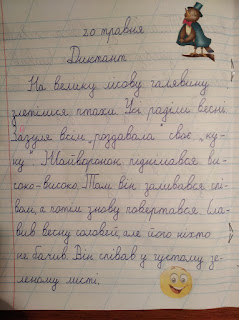 20 травня
Диктант
На велику лісову галявину
злетілися птахи. Усі раділи весні
Зозуля всім „роздавала" своє „ку-
ку". Жайворонок піднімався ви-
соко-високо. Там він заливався спі-
вом, а потім знову повертався. Сла-
вив весну соловей, але його ніхто
не бачив. Він співав у густому зе-
леному листі.